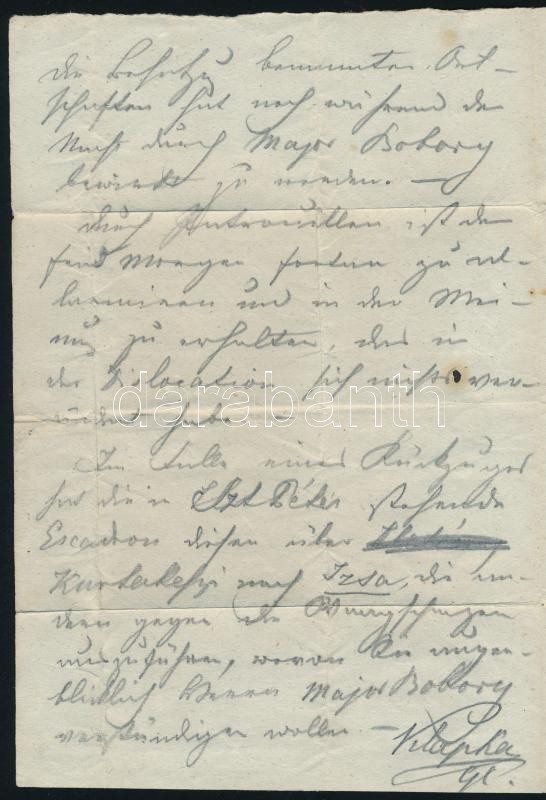 die Besetzg benannter Ort-
schaften hat noch während der
Nacht durch Major Bobory
bewirkt zu werden. —
durch Patrouillen ist der
Feind Morgen fortan zu al-
larmieren und in der Mei-
nung zu erhalten, das in
der Dislocation sich nichts ver-
ändert habe
Im Falle eines Rückzuges
hat die in Szt Péter stehende
Escadron diesen über
Kurtakeszi nach Izsa, die an-
dern gegen die
auszuführen, wovon Sie augen-
blicklich Herrn Major Bobory
verständigen wollen. —
Klapka
darabanth